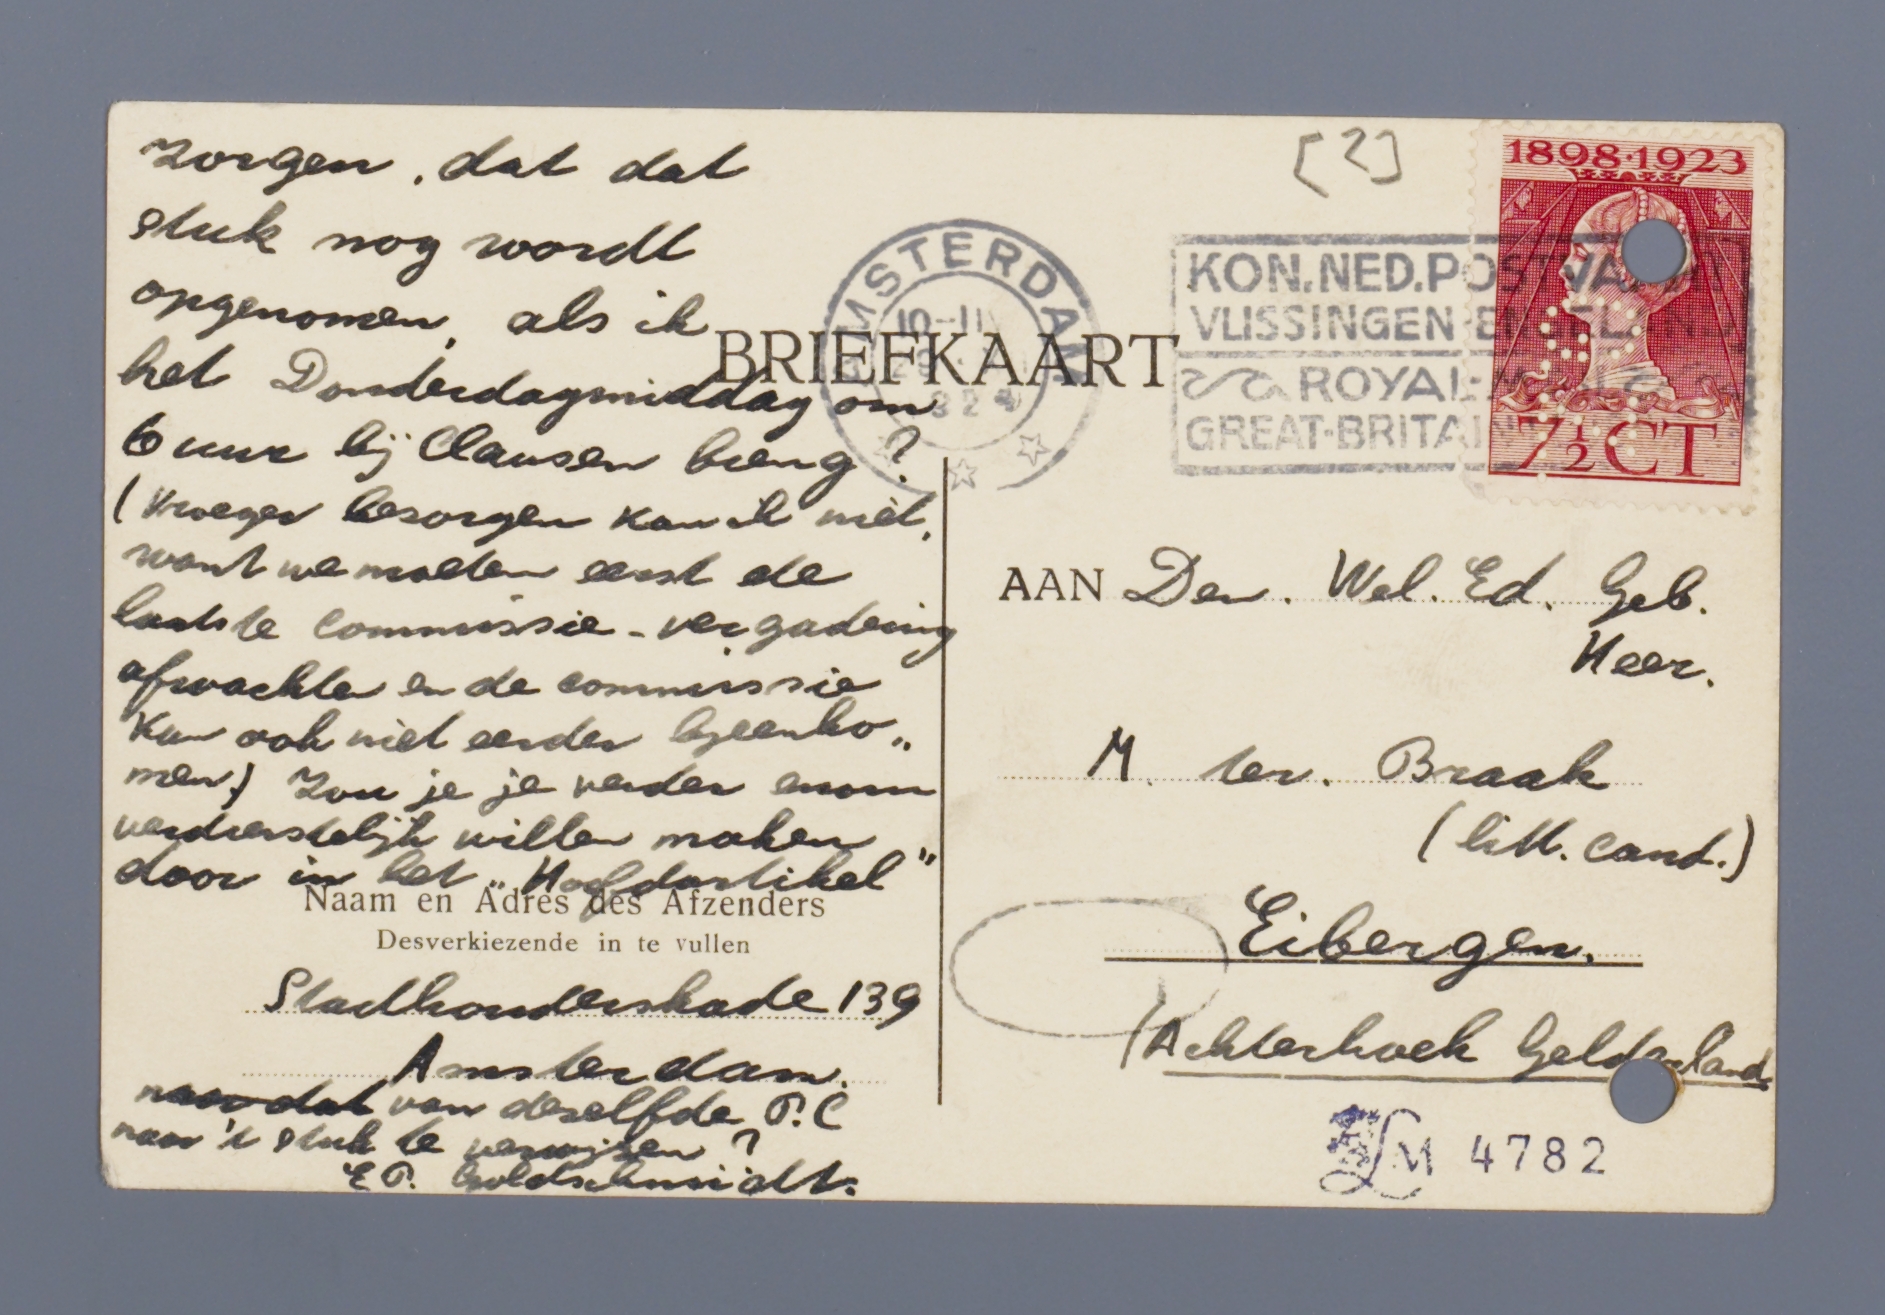 zorgen, dat dat
stuk nog wordt
opgenomen, als ik
het Donderdagmiddag om
6 uur bij Clausen breng?
(Vroeger bezorgen kan ik niet,
want we moeten eerst de
laatste commissie-vergadering
afwachten en de commissie
kan ook niet eerder bijeenko„
men) Zou je je verder enorm
verdienstelijk willen maken
door in het „Hoofdartikel"
Naam en Adres des Afzenders
Desverkiezende in te vullen
Stadhouderskade 139
Amsterdam.
van dezelfde P.C
naar 't stuk te verwijzen?
E P. Goldschmidt.
[2]
1898·1923
7½ CT
AMSTERDAM
10-11
KON.NED.POSTVAART
VLISSINGEN-ENGELAND
ROYAL-MAIL
GREAT-BRITAIN
BRIEFKAART
AAN Den. Wel. Ed. Geb.
Heer.
M. ter. Braak
(litt. cand.)
Eibergen.
(Achterhoek Gelderland
LM 4782